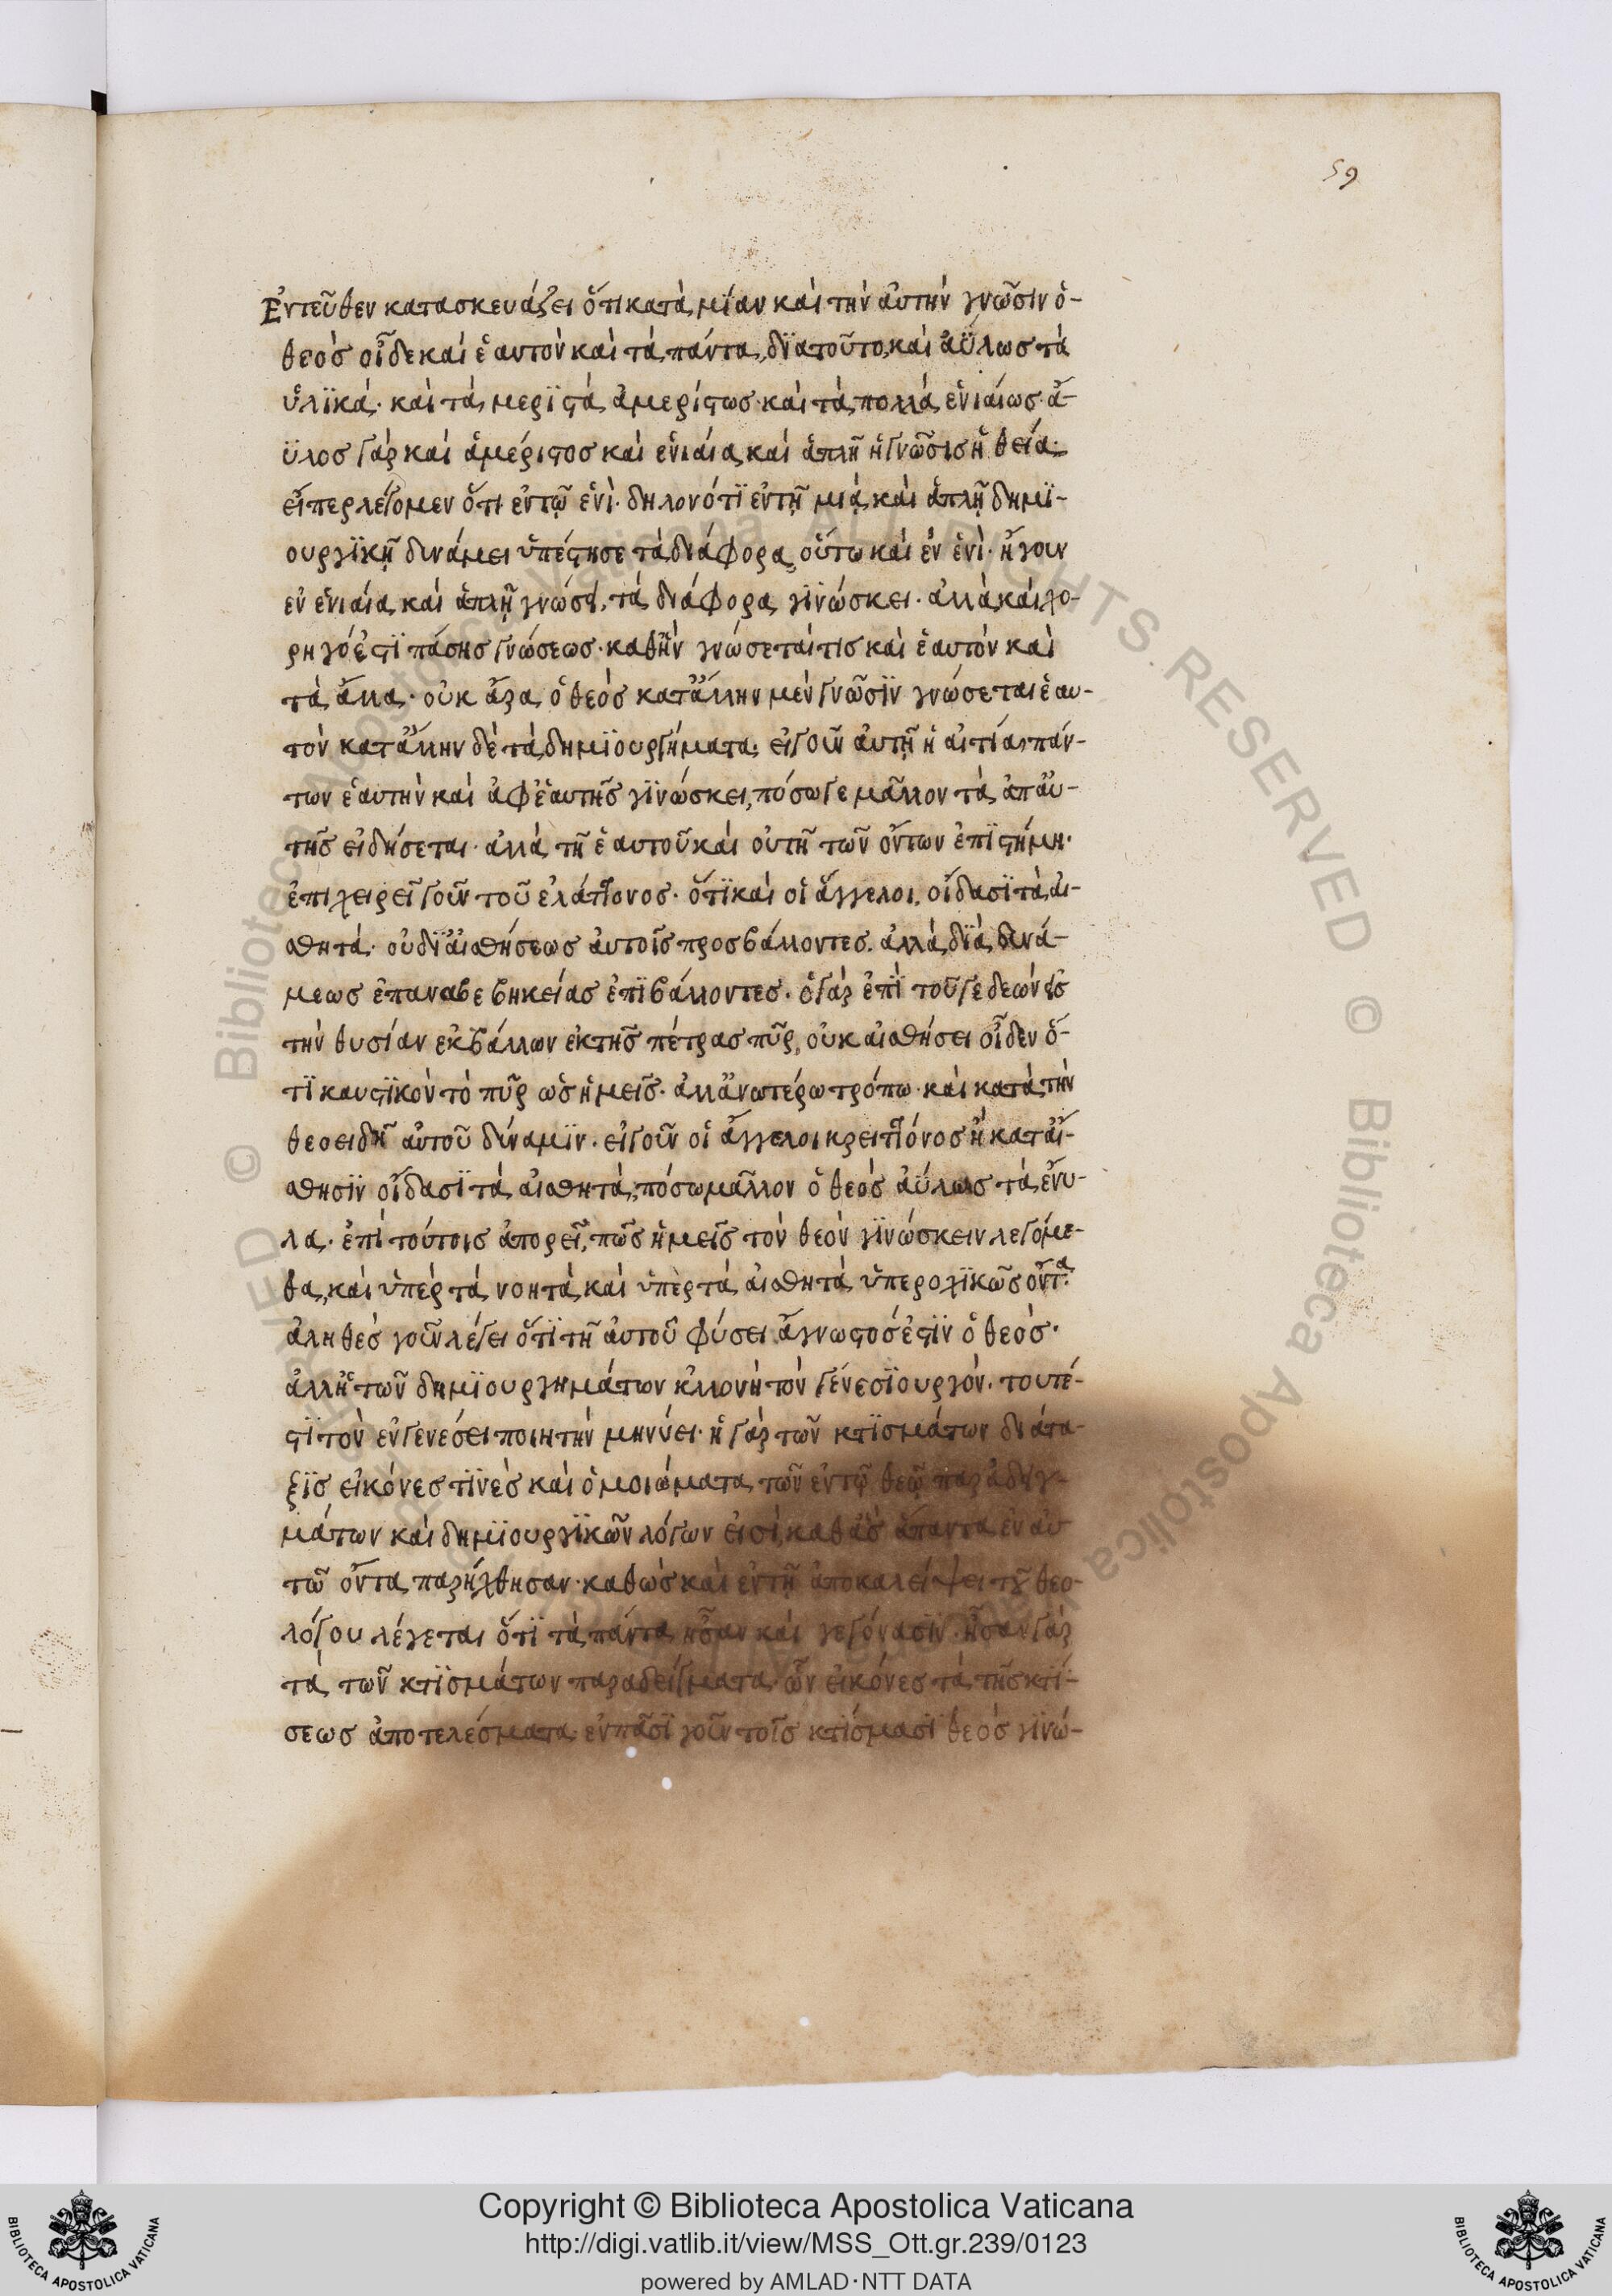 59
Ἐντεῦθεν κατασκευάζει ὅτι κατὰ μίαν καὶ τὴν ἀυτὴν γνῶσιν ὁ-
θεὸσ οἶδε καὶ ἑαυτὸν καὶ τὰ πάντα, δϊατοῦτο, καὶ ἀΰλωσ τὰ
ὑλϊκά· καὶ τὰ μερϊστὰ ἀμερίστωσ· καὶ τὰ πολλὰ ἑνιαίωσ· ἄ-
ϋλοσ γὰρ καὶ ἀμέριστοσ καὶ ἑνιαία, καὶ ἁπλῆ ἡ γνῶσισ ἡ θεία·
εἴπερ λέγομεν ὅτι ἐντῷ ἑνὶ· δηλονότϊ ἐντῇ μιᾷ καὶ ἁπλῇ δημϊ-
ουργϊκῇ δυνάμει ὑπέστησε τὰ διάφορα, οὕτω καὶ ἐν ἑνὶ· ἤγουν
ἐν ἑνιαία καὶ ἁπλῇ γνώσει, τὰ διάφορα γϊνώσκει· ἀλλὰ καὶ χο-
ρηγόσ ἐστϊ πάσησ γνώσεωσ· καθἣν γνώσεταί τισ καὶ ἑαυτὸν καὶ
τὰ ἄλλα· οὐκ ἄρα ὁ θεὸσ κατἄλλην μὲν γνῶσϊν γνώσεται ἑαυ-
τὸν κατἄλλην δὲ τὰ δημϊουργήματα· εἰ γοῦν ἀυτῆ ἡ αἰτία πάν-
των ἑαυτὴν καὶ ἀφἑαυτῆσ γϊνώσκει, πόσω γε μᾶλλον τὰ ἀπἀυ-
τῆσ εἰδήσεται· ἀλλὰ τῆ ἑαυτοῦ καὶ ὀυτῆ τῶν ὄντων ἐπϊστήμη·
ἐπιχειρεῖ γοῦν τοῦ ἐλάττονοσ· ὅτϊ καὶ οἱ ἄγγελοι, οἴδασϊ τὰ αἰ-
σθητά· οὐ δϊ ἀισθήσεωσ ἀυτοῖσ προσβάλλοντεσ· ἀλλὰ δϊὰ δυνά-
μεωσ ἐπαναβεβηκείασ ἐπϊβάλλοντεσ· ὁ γὰρ ἐπὶ τοῦ γεδεὼν εἰσ
τὴν θυσίαν ἐκβάλλων ἐκτῆσ πέτρασ πῦρ, οὐκ αἰσθήσει οἶδεν ὅ-
τϊ καυστϊκὸν τὸ πῦρ ὡσ ἡμεῖσ· ἀλλἀνωτέρω τρόπω· καὶ κατὰ τὴν
θεοειδῆ ἀυτοῦ δύναμϊν· εἰ γοῦν οἱ ἄγγελοι κρειττόνοσ ἢ κατἀί-
σθησϊν οἴδασϊ τὰ αἰσθητὰ, πόσω μᾶλλον ὁ θεὸσ ἀΰλωσ τὰ ἔνυ-
λα· ἐπὶ τούτοισ ἀπορεῖ, πῶσ ἡμεῖσ τὸν θεὸν γϊνώσκειν λεγόμε-
θα, καὶ ὑπὲρ τὰ νοητὰ, καὶ ὑπὲρ τὰ αἰσθητὰ ὑπεροχϊκῶσ ὄντα·
ἀληθὲσ γοῦν λέγει ὅτϊ τῆ ἀυτοῦ φύσει ἄγνωστοσ ἐστϊν ὁ θεὸσ·
ἀλλἡ τῶν δημϊουργημάτων κἀλλονὴ τὸν γενεσϊουργόν· τουτέ-
στϊ τὸν ἐν γενέσει ποιητὴν μηνύει· ἡ γὰρ τῶν κτϊσμάτων διάτα-
ξϊσ εἰκόνεσ τϊνὲσ καὶ ὁμοιώματα τῶν ἐντῷ θεῷ παραδειγ-
μάτων καὶ δημϊουργϊκῶν λόγων εἰσὶ, καθἃσ ἅπαντα ἐν ἀυ
τῶ ὄντα παρήχθησαν· καθὼσ καὶ ἐντῇ ἀποκαλείψει τοῦ θεο-
λόγου λέγεται ὅτϊ τὰ πάντα ἦσαν καὶ γεγόνασϊν· ἦσαν γὰρ
τὰ τῶν κτϊσμάτων παραδείγματα· ὧν εἰκόνεσ τὰ τῆσ κτί-
σεωσ ἀποτελέσματα· ἐν πᾶσϊ γοῦν τοῖσ κτίσμασϊ θεὸσ γϊνώ-
Copyright © Biblioteca Apostolica Vaticana
http://digi.vatlib.it/view/MSS_Ott.gr.239/0123
powered by AMLAD·NTT DATA
BIBLIOTECA APOSTOLICA VATICANA
BIBLIOTECA APOSTOLICA VATICANA